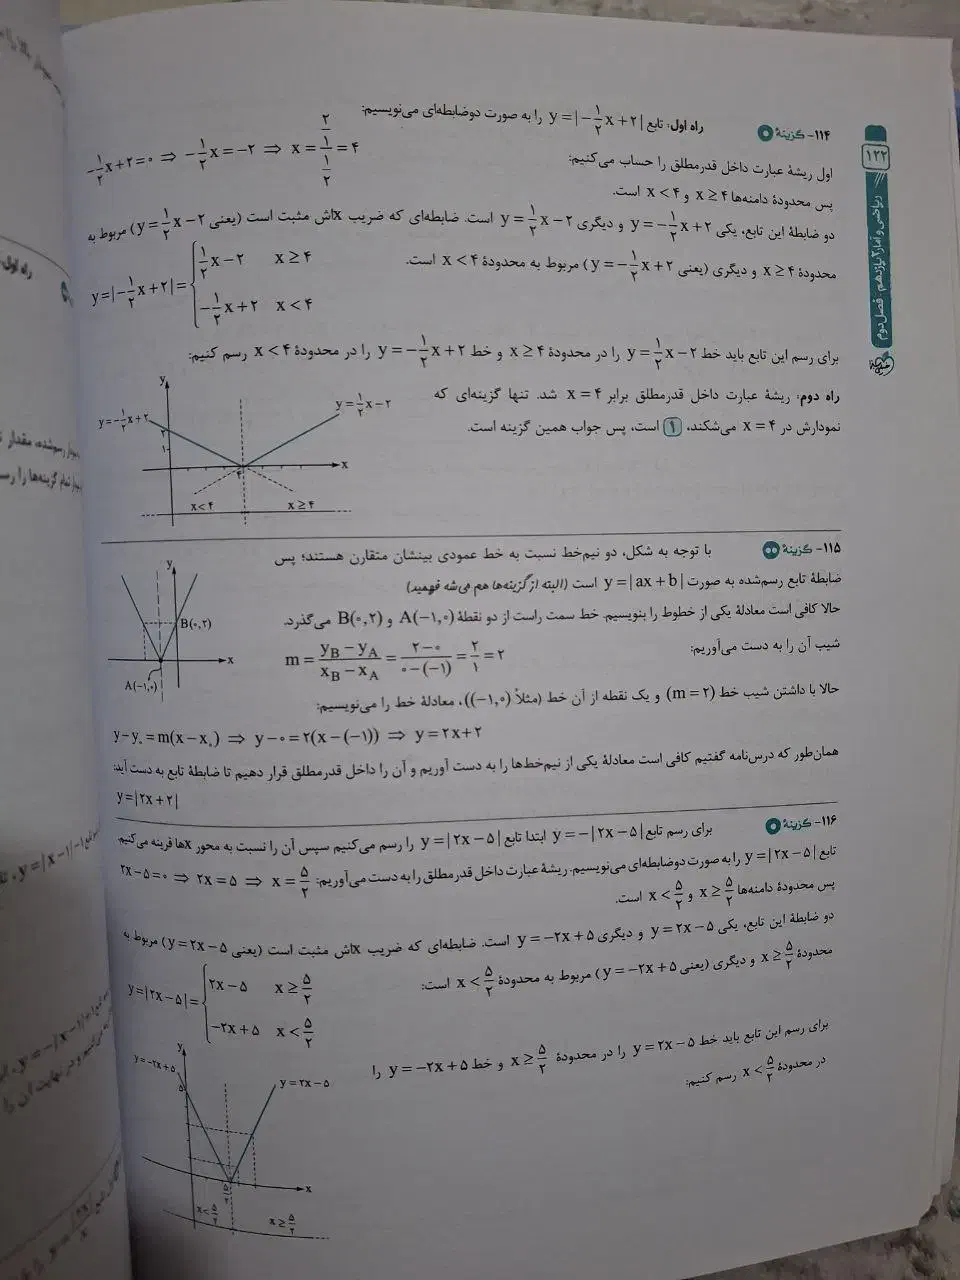 ۱۲۲
ریاضی و آمار ۲ یازدهم . فصل دوم
۱۱۴- گزینهٔ ۱ راه اول: تابع y=|-۱/۲x+۲| را به صورت دوضابطه‌ای می‌نویسیم:
اول ریشهٔ عبارت داخل قدرمطلق را حساب می‌کنیم:
-۱/۲x+۲=۰ ⇒ -۱/۲x=-۲ ⇒ x=۲/(۱/۲)=۴
پس محدودهٔ دامنه‌ها x≥۴ و x<۴ است.
دو ضابطهٔ این تابع، یکی y=-۱/۲x+۲ و دیگری y=۱/۲x-۲ است. ضابطه‌ای که ضریب xاش مثبت است (یعنی y=۱/۲x-۲) مربوط به
محدودهٔ x≥۴ و دیگری (یعنی y=-۱/۲x+۲) مربوط به محدودهٔ x<۴ است.
y=|-۱/۲x+۲|={ ۱/۲x-۲ x≥۴
-۱/۲x+۲ x<۴
برای رسم این تابع باید خط y=۱/۲x-۲ را در محدودهٔ x≥۴ و خط y=-۱/۲x+۲ را در محدودهٔ x<۴ رسم کنیم:
راه دوم: ریشهٔ عبارت داخل قدرمطلق برابر x=۴ شد. تنها گزینه‌ای که
نمودارش در x=۴ می‌شکند، ۱ است، پس جواب همین گزینه است.
y
y=-۱/۲x+۲
y=۱/۲x-۲
۲
۱
۴
x
x<۴
x≥۴
۱۱۵- گزینهٔ با توجه به شکل، دو نیم‌خط نسبت به خط عمودی بینشان متقارن هستند؛ پس
ضابطهٔ تابع رسم‌شده به صورت y=|ax+b| است (البته از گزینه‌ها هم می‌شه فهمید)
حالا کافی است معادلهٔ یکی از خطوط را بنویسیم. خط سمت راست از دو نقطهٔ A(-۱,۰) و B(۰,۲) می‌گذرد.
شیب آن را به دست می‌آوریم:
m=(yB-yA)/(xB-xA)=(۲-۰)/(۰-(-۱))=۲/۱=۲
y
B(۰,۲)
x
A(-۱,۰)
حالا با داشتن شیب خط (m=۲) و یک نقطه از آن خط (مثلاً (-۱,۰))، معادلهٔ خط را می‌نویسیم:
y-y₀=m(x-x₀) ⇒ y-۰=۲(x-(-۱)) ⇒ y=۲x+۲
همان‌طور که درس‌نامه گفتیم کافی است معادلهٔ یکی از نیم‌خط‌ها را به دست آوریم و آن را داخل قدرمطلق قرار دهیم تا ضابطهٔ تابع به دست آید:
y=|۲x+۲|
۱۱۶- گزینهٔ برای رسم تابع y=-|۲x-۵| ابتدا تابع y=|۲x-۵| را رسم می‌کنیم سپس آن را نسبت به محور xها قرینه می‌کنیم
تابع y=|۲x-۵| را به صورت دوضابطه‌ای می‌نویسیم. ریشهٔ عبارت داخل قدرمطلق را به دست می‌آوریم: ۲x-۵=۰ ⇒ ۲x=۵ ⇒ x=۵/۲
پس محدودهٔ دامنه‌ها x≥۵/۲ و x<۵/۲ است.
دو ضابطهٔ این تابع، یکی y=۲x-۵ و دیگری y=-۲x+۵ است. ضابطه‌ای که ضریب xاش مثبت است (یعنی y=۲x-۵) مربوط به
محدودهٔ x≥۵/۲ و دیگری (یعنی y=-۲x+۵) مربوط به محدودهٔ x<۵/۲ است:
y=|۲x-۵|={ ۲x-۵ x≥۵/۲
-۲x+۵ x<۵/۲
برای رسم این تابع باید خط y=۲x-۵ را در محدودهٔ x≥۵/۲ و خط y=-۲x+۵ را
در محدودهٔ x<۵/۲ رسم کنیم:
y
y=-۲x+۵
۵
y=۲x-۵
۵/۲
x
x<۵/۲
x≥۵/۲
راه اول: